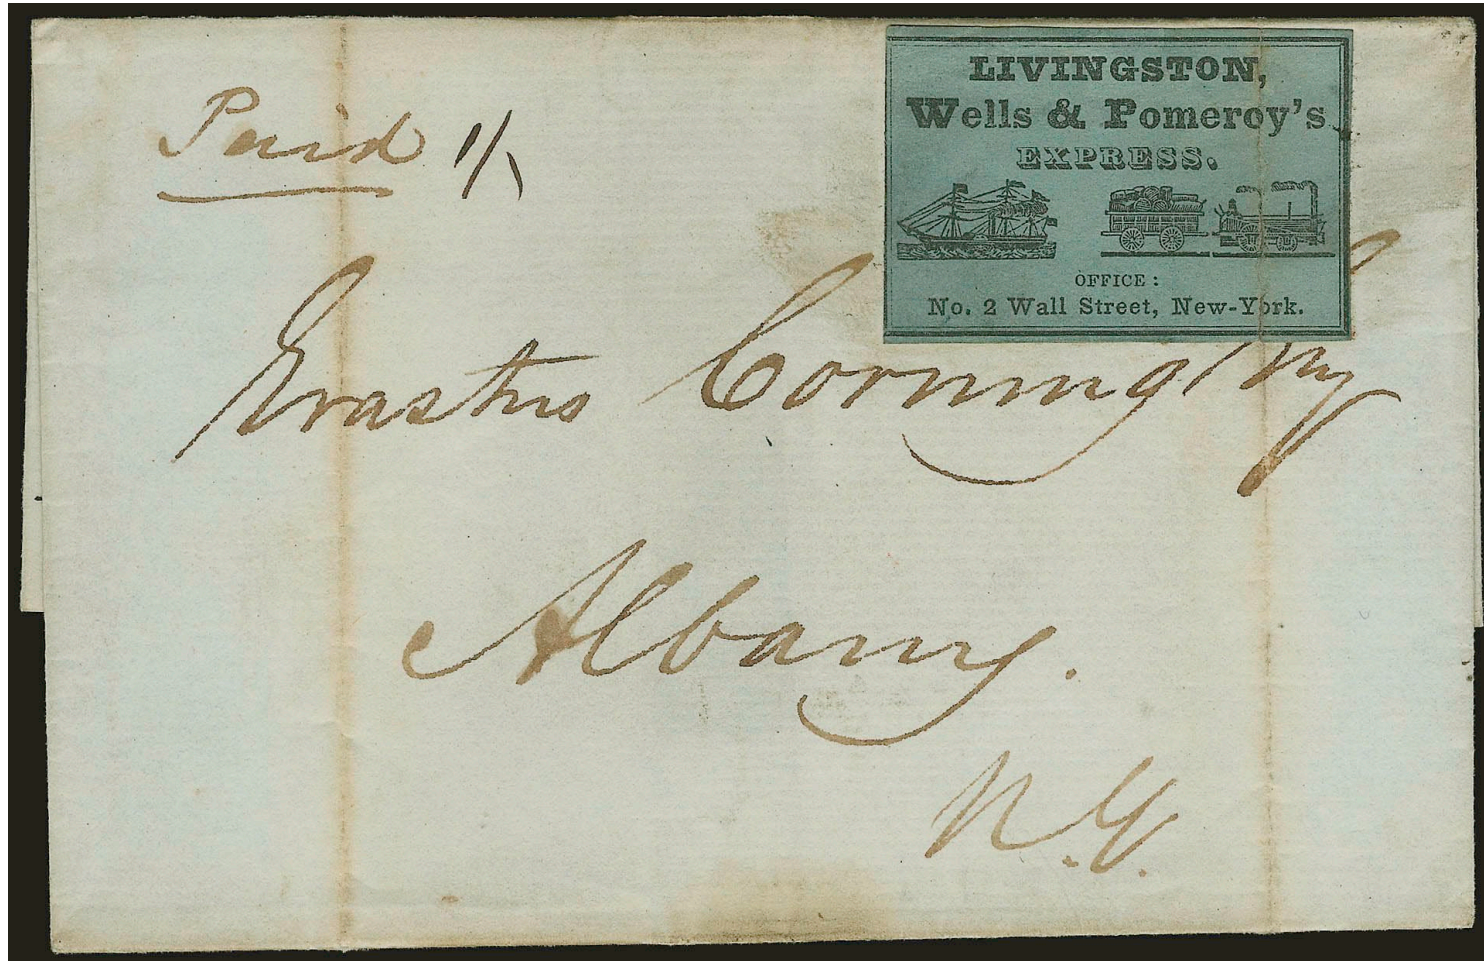 Paid 1/
LIVINGSTON,
Wells & Pomeroy's
EXPRESS.
OFFICE :
No. 2 Wall Street, New-York.
Erastus Corning Esq
Albany.
N.Y.